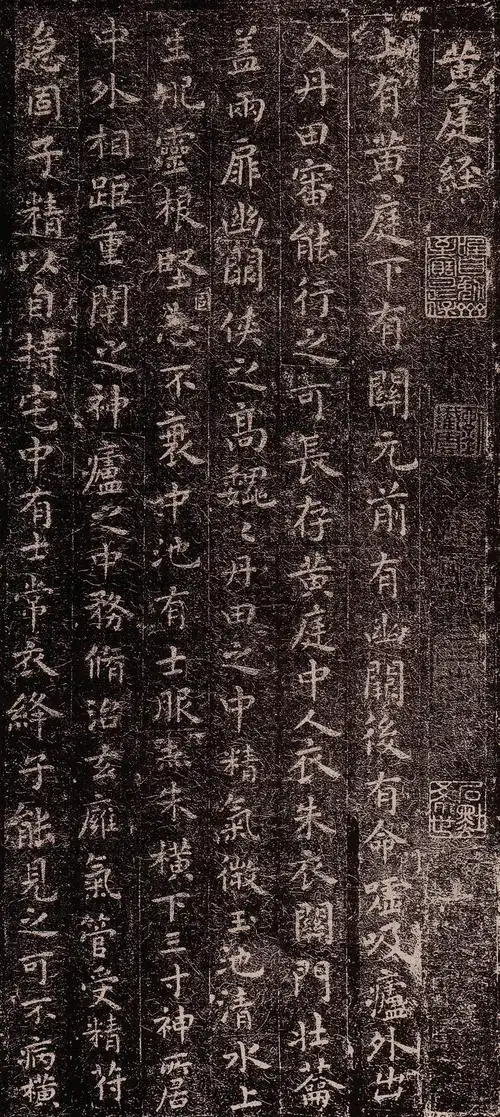 黄庭経
上有黄庭下有關元前有幽闕後有命嘘吸廬外出
入丹田審能行之可長存黄庭中人衣朱衣關門壮蘥
盖兩扉幽闕侠之高魏〻丹田之中精氣微玉池清水上
生肥靈根堅志不衰中池有士服赤朱横下三寸神所居
中外相距重閇之神廬之中務脩治玄廱氣管受精符
急固子精以自持宅中有士常衣絳子能見之可不病横